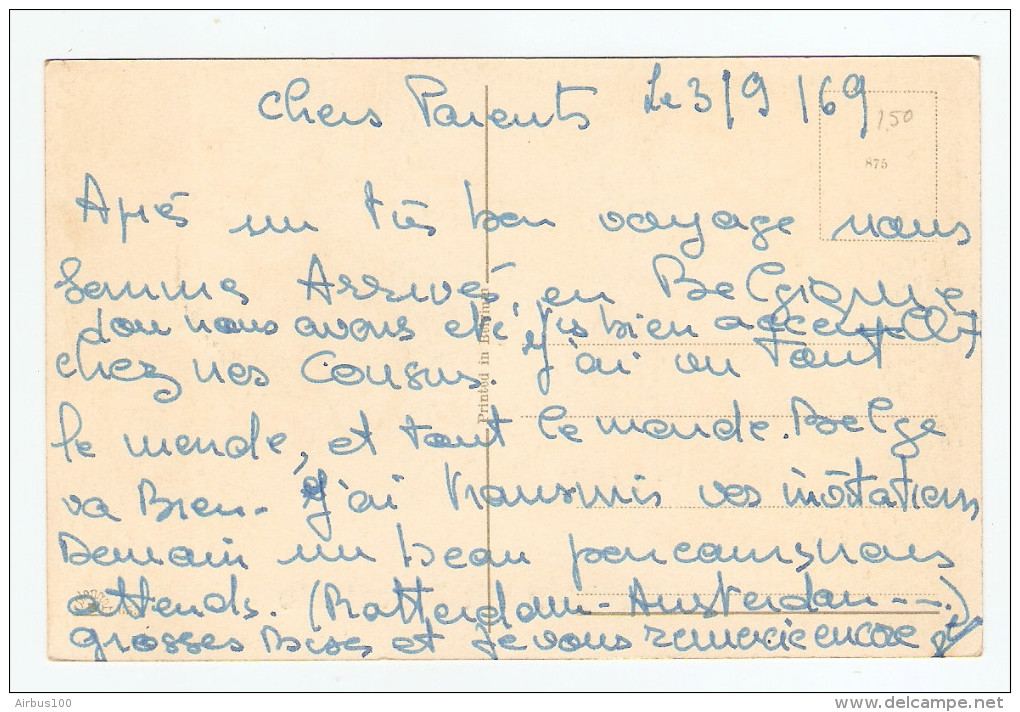 Chers Parents Le 3/9/69
1,50
875
Après un très bon voyage nous
somme Arrivés en Belgique
don nous avons eté très bien accent
chez nos Cousins. j'ai vu tout
le monde, et tout le monde Belge
va Bien - j'ai transmis vos invitations
Demain un beau parcours nous
attends. (Rotterdam - Amsterdan ---.)
grosses Bises et je vous remercie encore
Printed in Belgium
Airbus100
www.delcampe.net